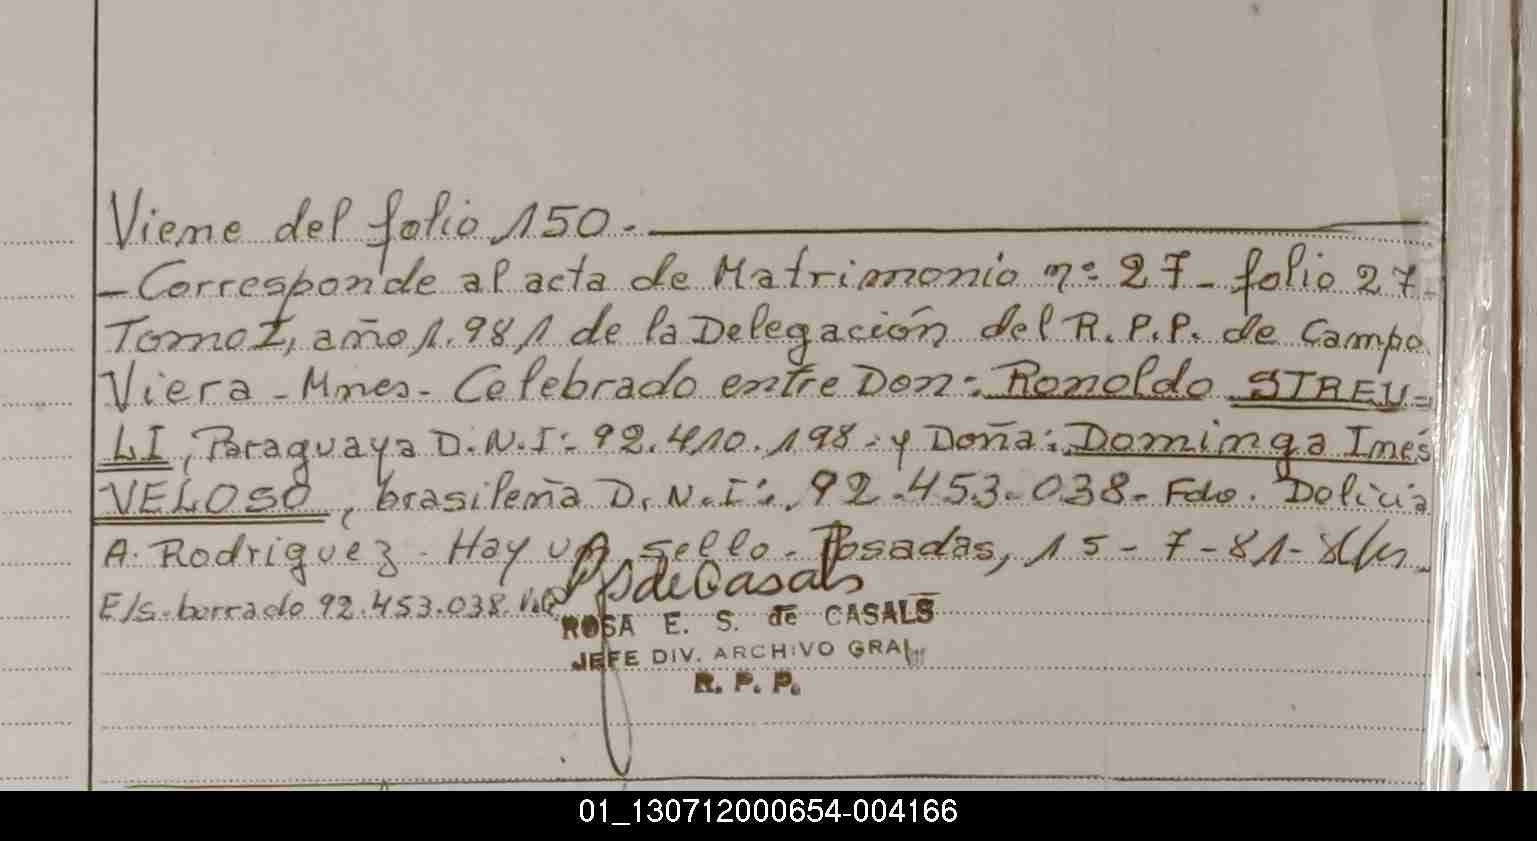 Viene del folio 150.-
- Corresponde al acta de Matrimonio nº 27- folio 27-
Tomo I, año 1.981 de la Delegación del R.P.P. de Campo
Viera - Mnes- Celebrado entre Don: Ronoldo STREU=
LI, Paraguaya D.N.I: 92.410.198- y Doña: Dominga Inés
VELOSO, brasileña D.N.I: 92.453.038- Fdo. Dolicia
A. Rodriguez - Hay un sello- Posadas, 15-7-81-
E/s.borrado 92.453.038.Vale
SdeCasals
ROSA E. S. de CASALS
JEFE DIV. ARCHIVO GRAL
R. P. P.
01_130712000654-004166